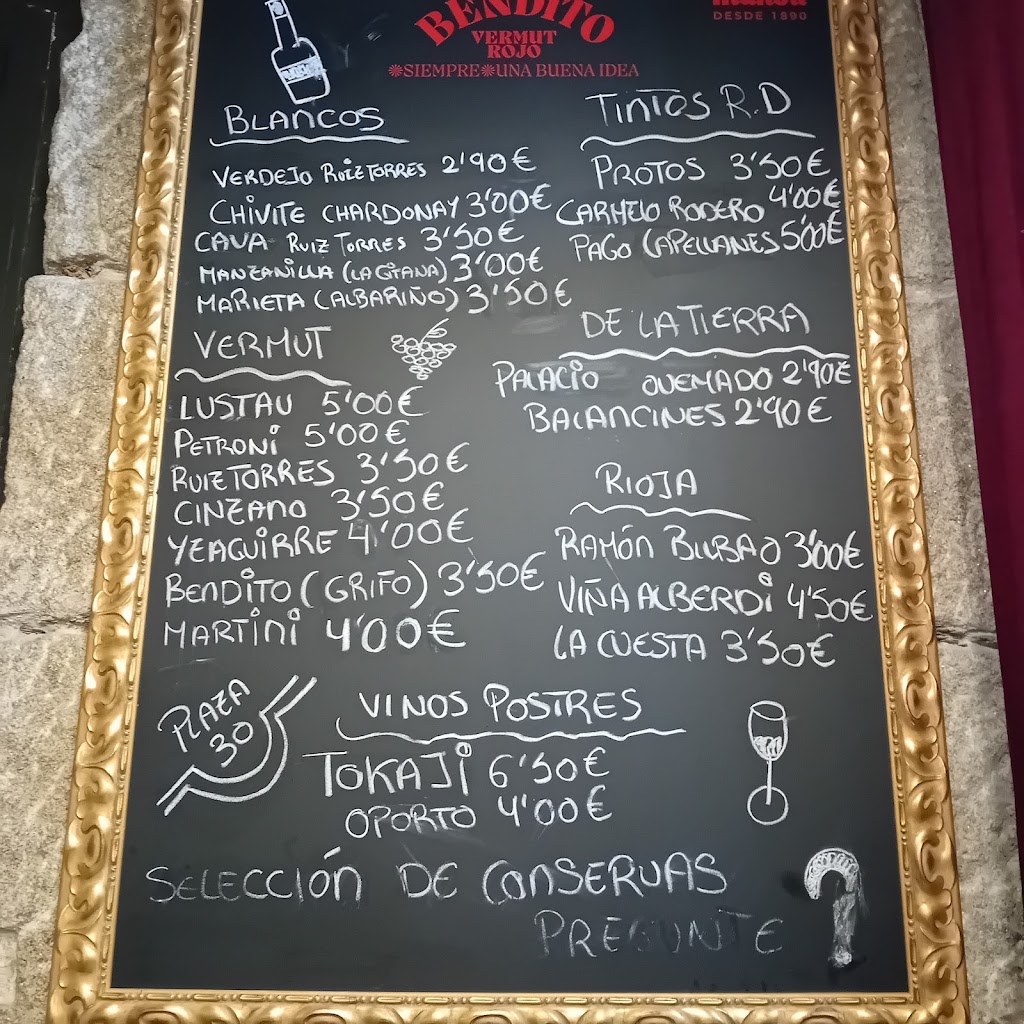 BENDITO
VERMUT
ROJO
SIEMPRE UNA BUENA IDEA
DESDE 1890
BLANCOS
VERDEJO RUIZ TORRES 2'90€
CHIVITE CHARDONAY 3'00€
CAVA RUIZ TORRES 3'50€
MANZANILLA (LA GITANA) 3'00€
MARIETA (ALBARIÑO) 3'50€
VERMUT
LUSTAU 5'00€
PETRONI 5'00€
RUIZ TORRES 3'50€
CINZANO 3'50€
YZAGUIRRE 4'00€
BENDITO (GRIFO) 3'50€
MARTINI 4'00€
TINTOS R.D
PROTOS 3'50€
CARMELO RODERO 4'00€
PAGO CAPELLANES 5'00€
DE LA TIERRA
PALACIO QUEMADO 2'90€
BALANCINES 2'90€
RIOJA
RAMÓN BILBAO 3'00€
VIÑA ALBERDI 4'50€
LA CUESTA 3'50€
PLAZA
30
VINOS POSTRES
TOKAJI 6'50€
OPORTO 4'00€
SELECCIÓN DE CONSERVAS
PREGUNTE ?